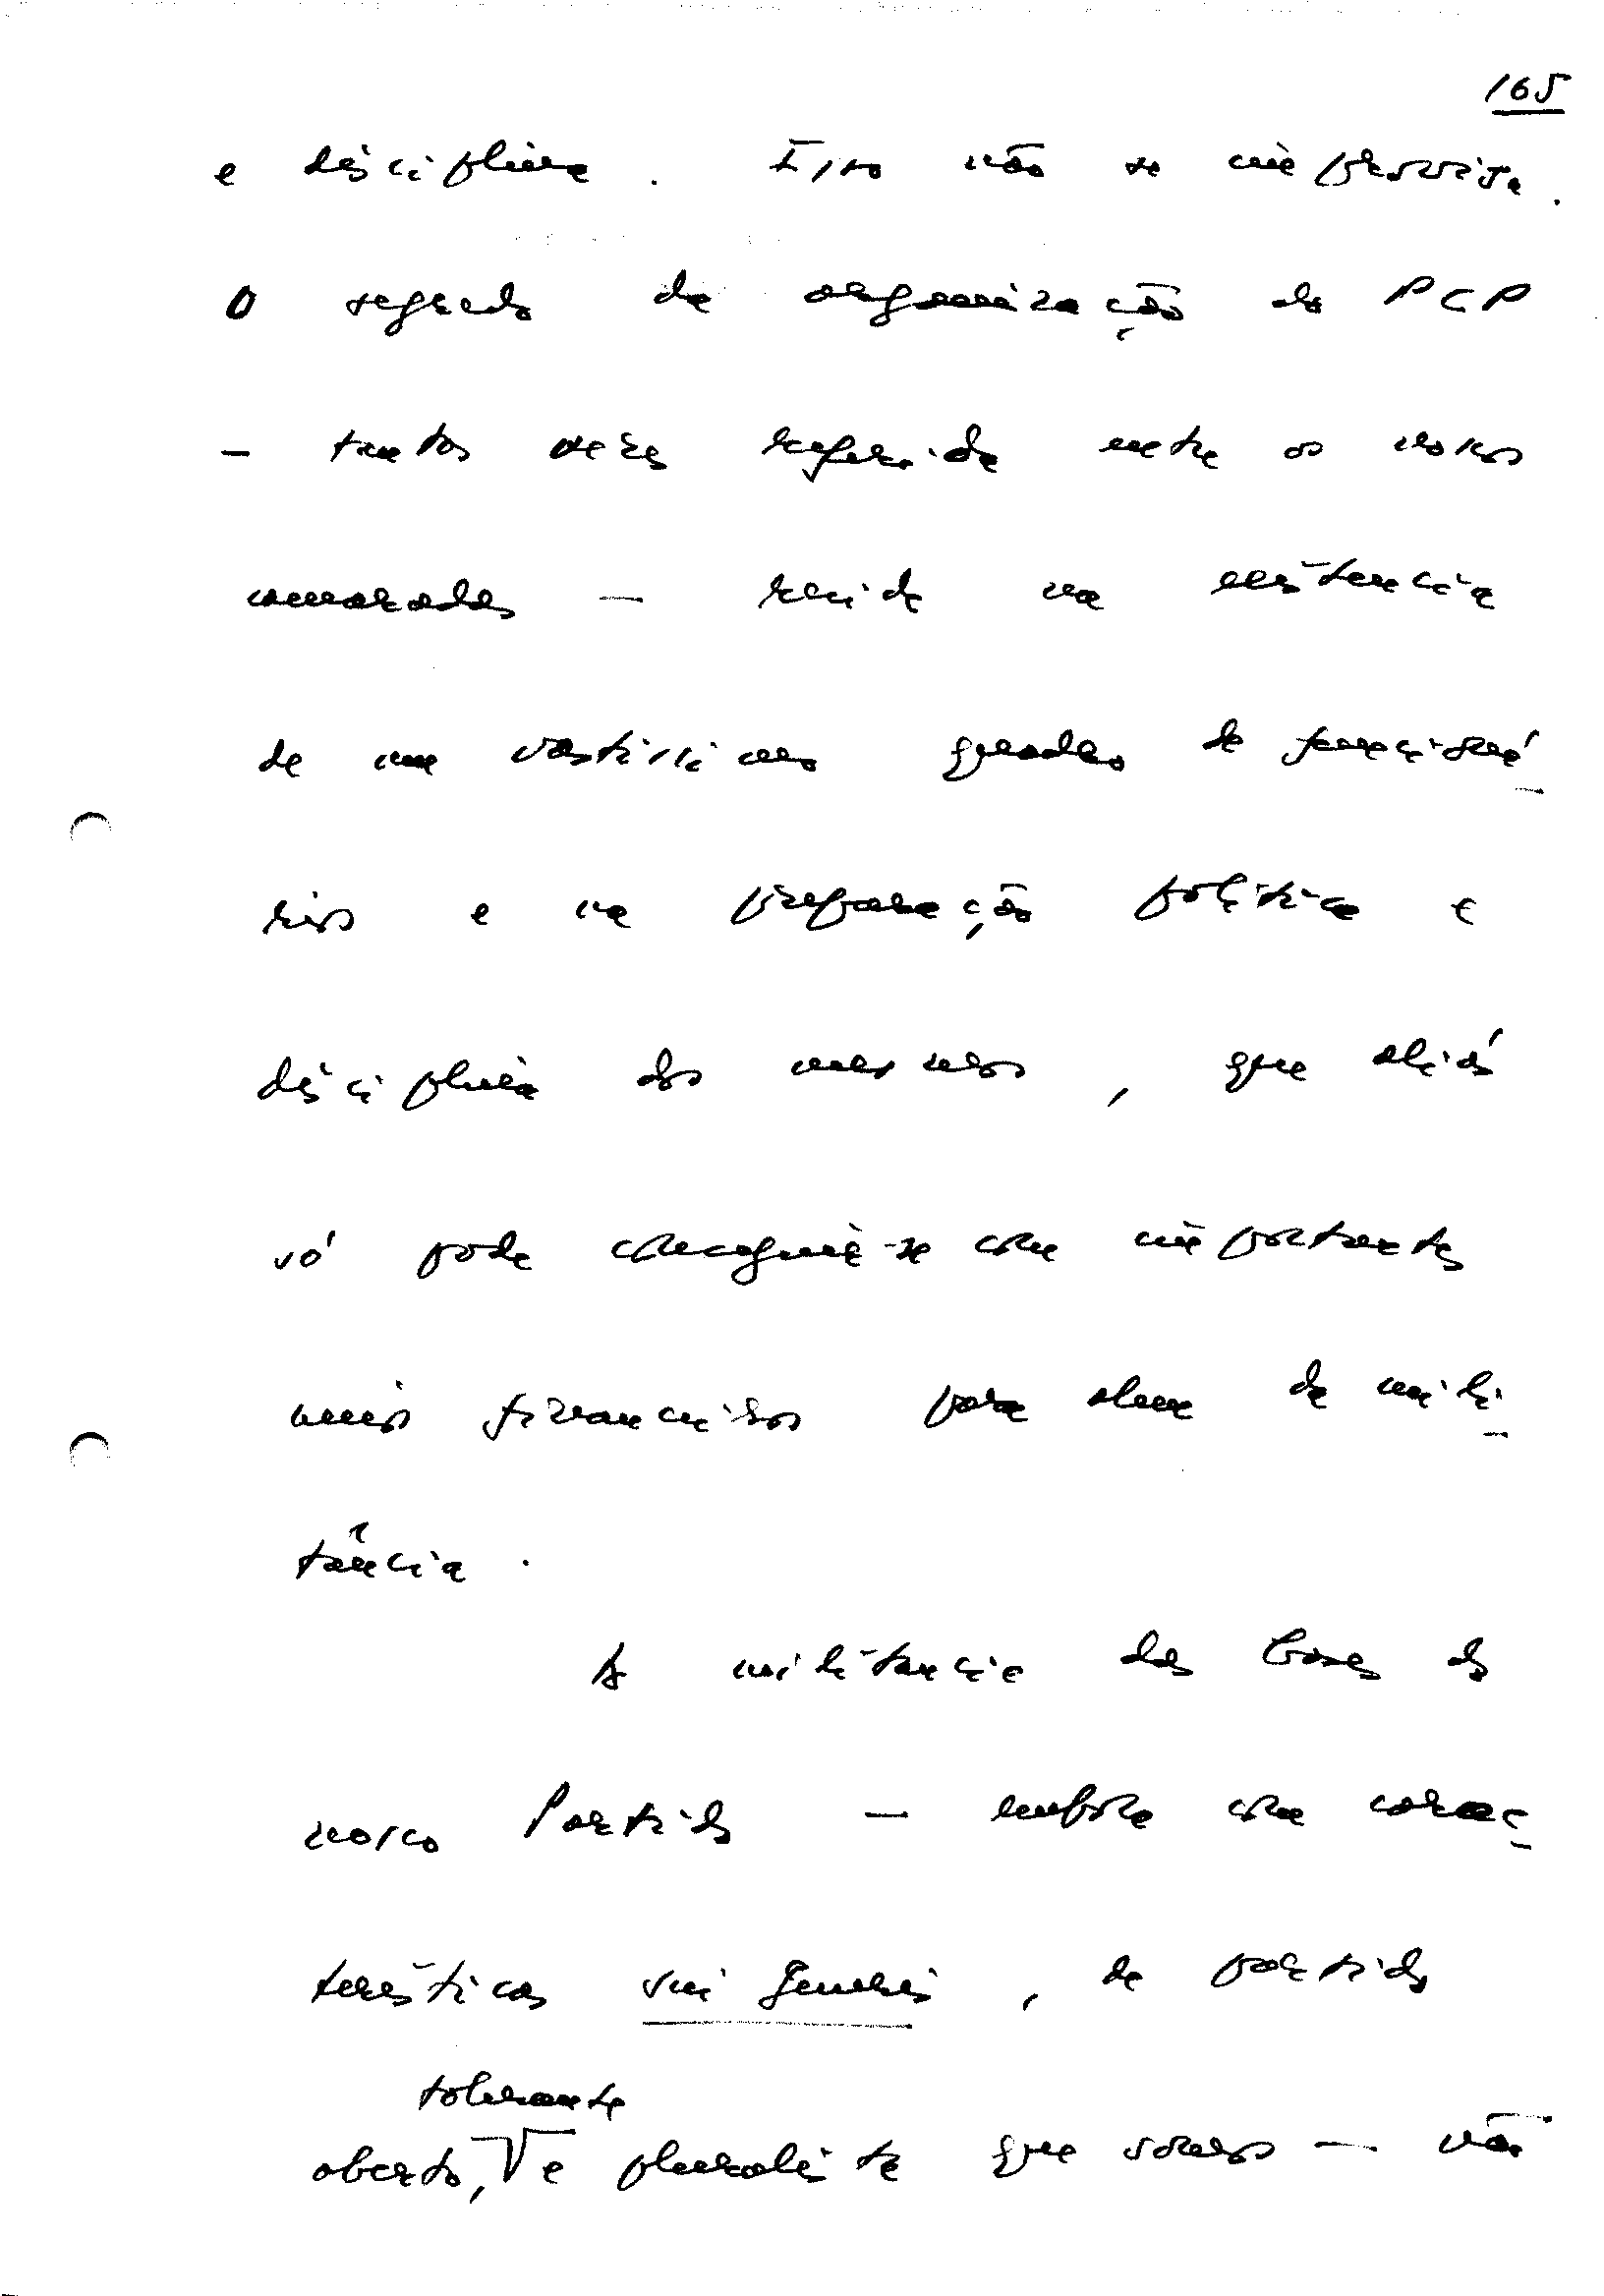 165
e disciplina. Isso não se improvisa.
O segredo da organização do PCP
- tantas vezes referida entre os nossos
camaradas - reside na existência
de um vastíssimo quadro de funcioná-
rios e na preparação política e
disciplina dos mesmos, que aliás
só pode conseguir-se com importantes
meios financeiros para além da mili-
tância.
A militância das bases do
nosso Partido - embora com carac-
terísticas sui generis, de partido
tolerante
aberto, V e pluralista que somos - não